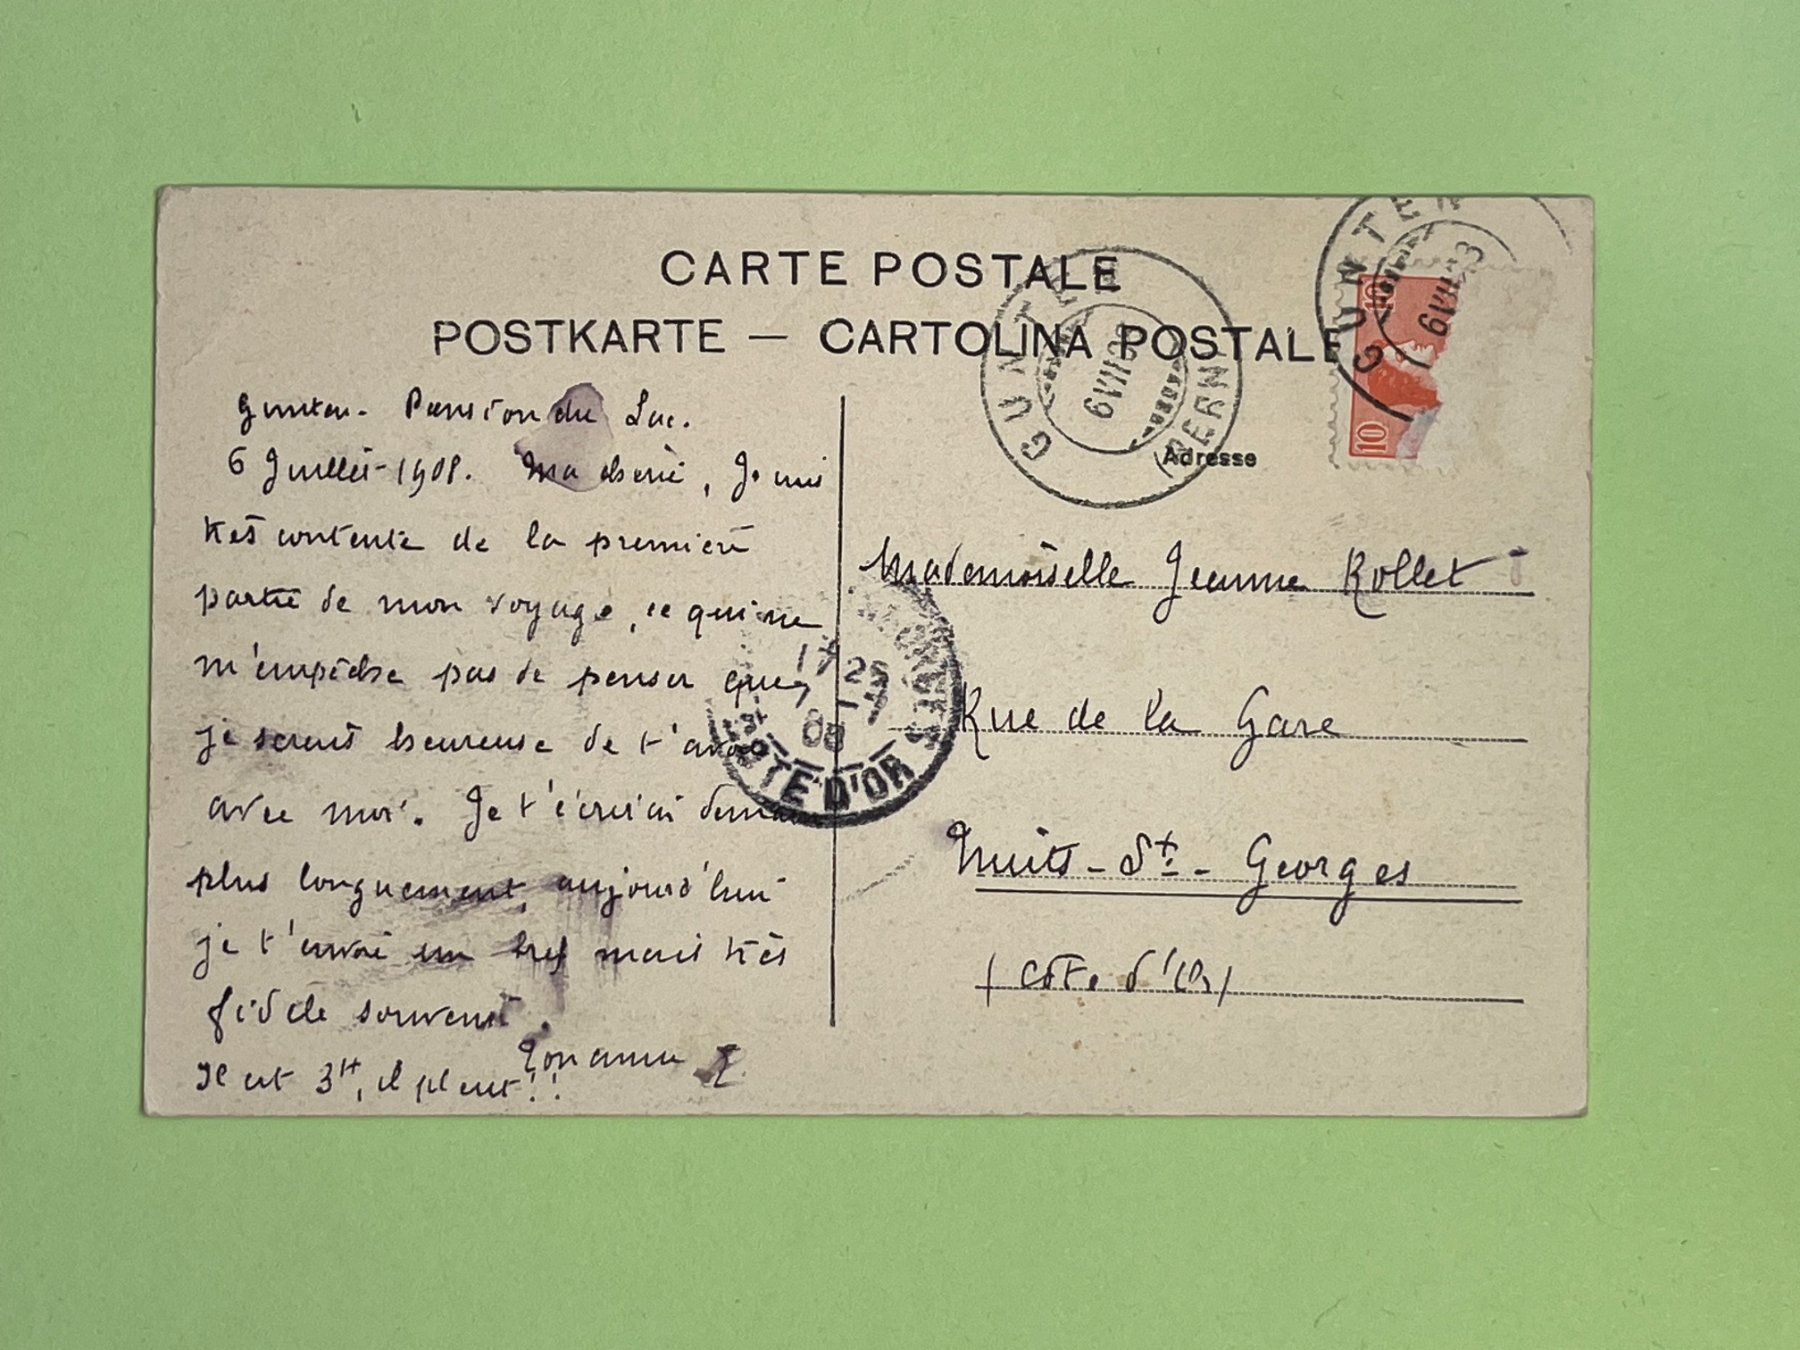 CARTE POSTALE
POSTKARTE — CARTOLINA POSTALE
Gunten. Pension du Lac.
6 Juillet-1908. Ma chérie, Je suis
très contente de la première
partie de mon voyage, ce qui ne
m'empêche pas de penser que,
je serais heureuse de t'avoir
avec moi. Je t'écrirai demain
plus longuement, aujourd'hui
je t'envoie un bref mais très
fidèle souvenir.
Ton amie
Il est 3H, il pleut!!
Adresse
Mademoiselle Jeanne Rollet
Rue de la Gare
Nuits-St-Georges
(Côte d'Or)
GUNTEN
(BERN)
6 VII 08
GUNTEN
6 VII
10
10
17 25
7 -7
08
COTE D'OR